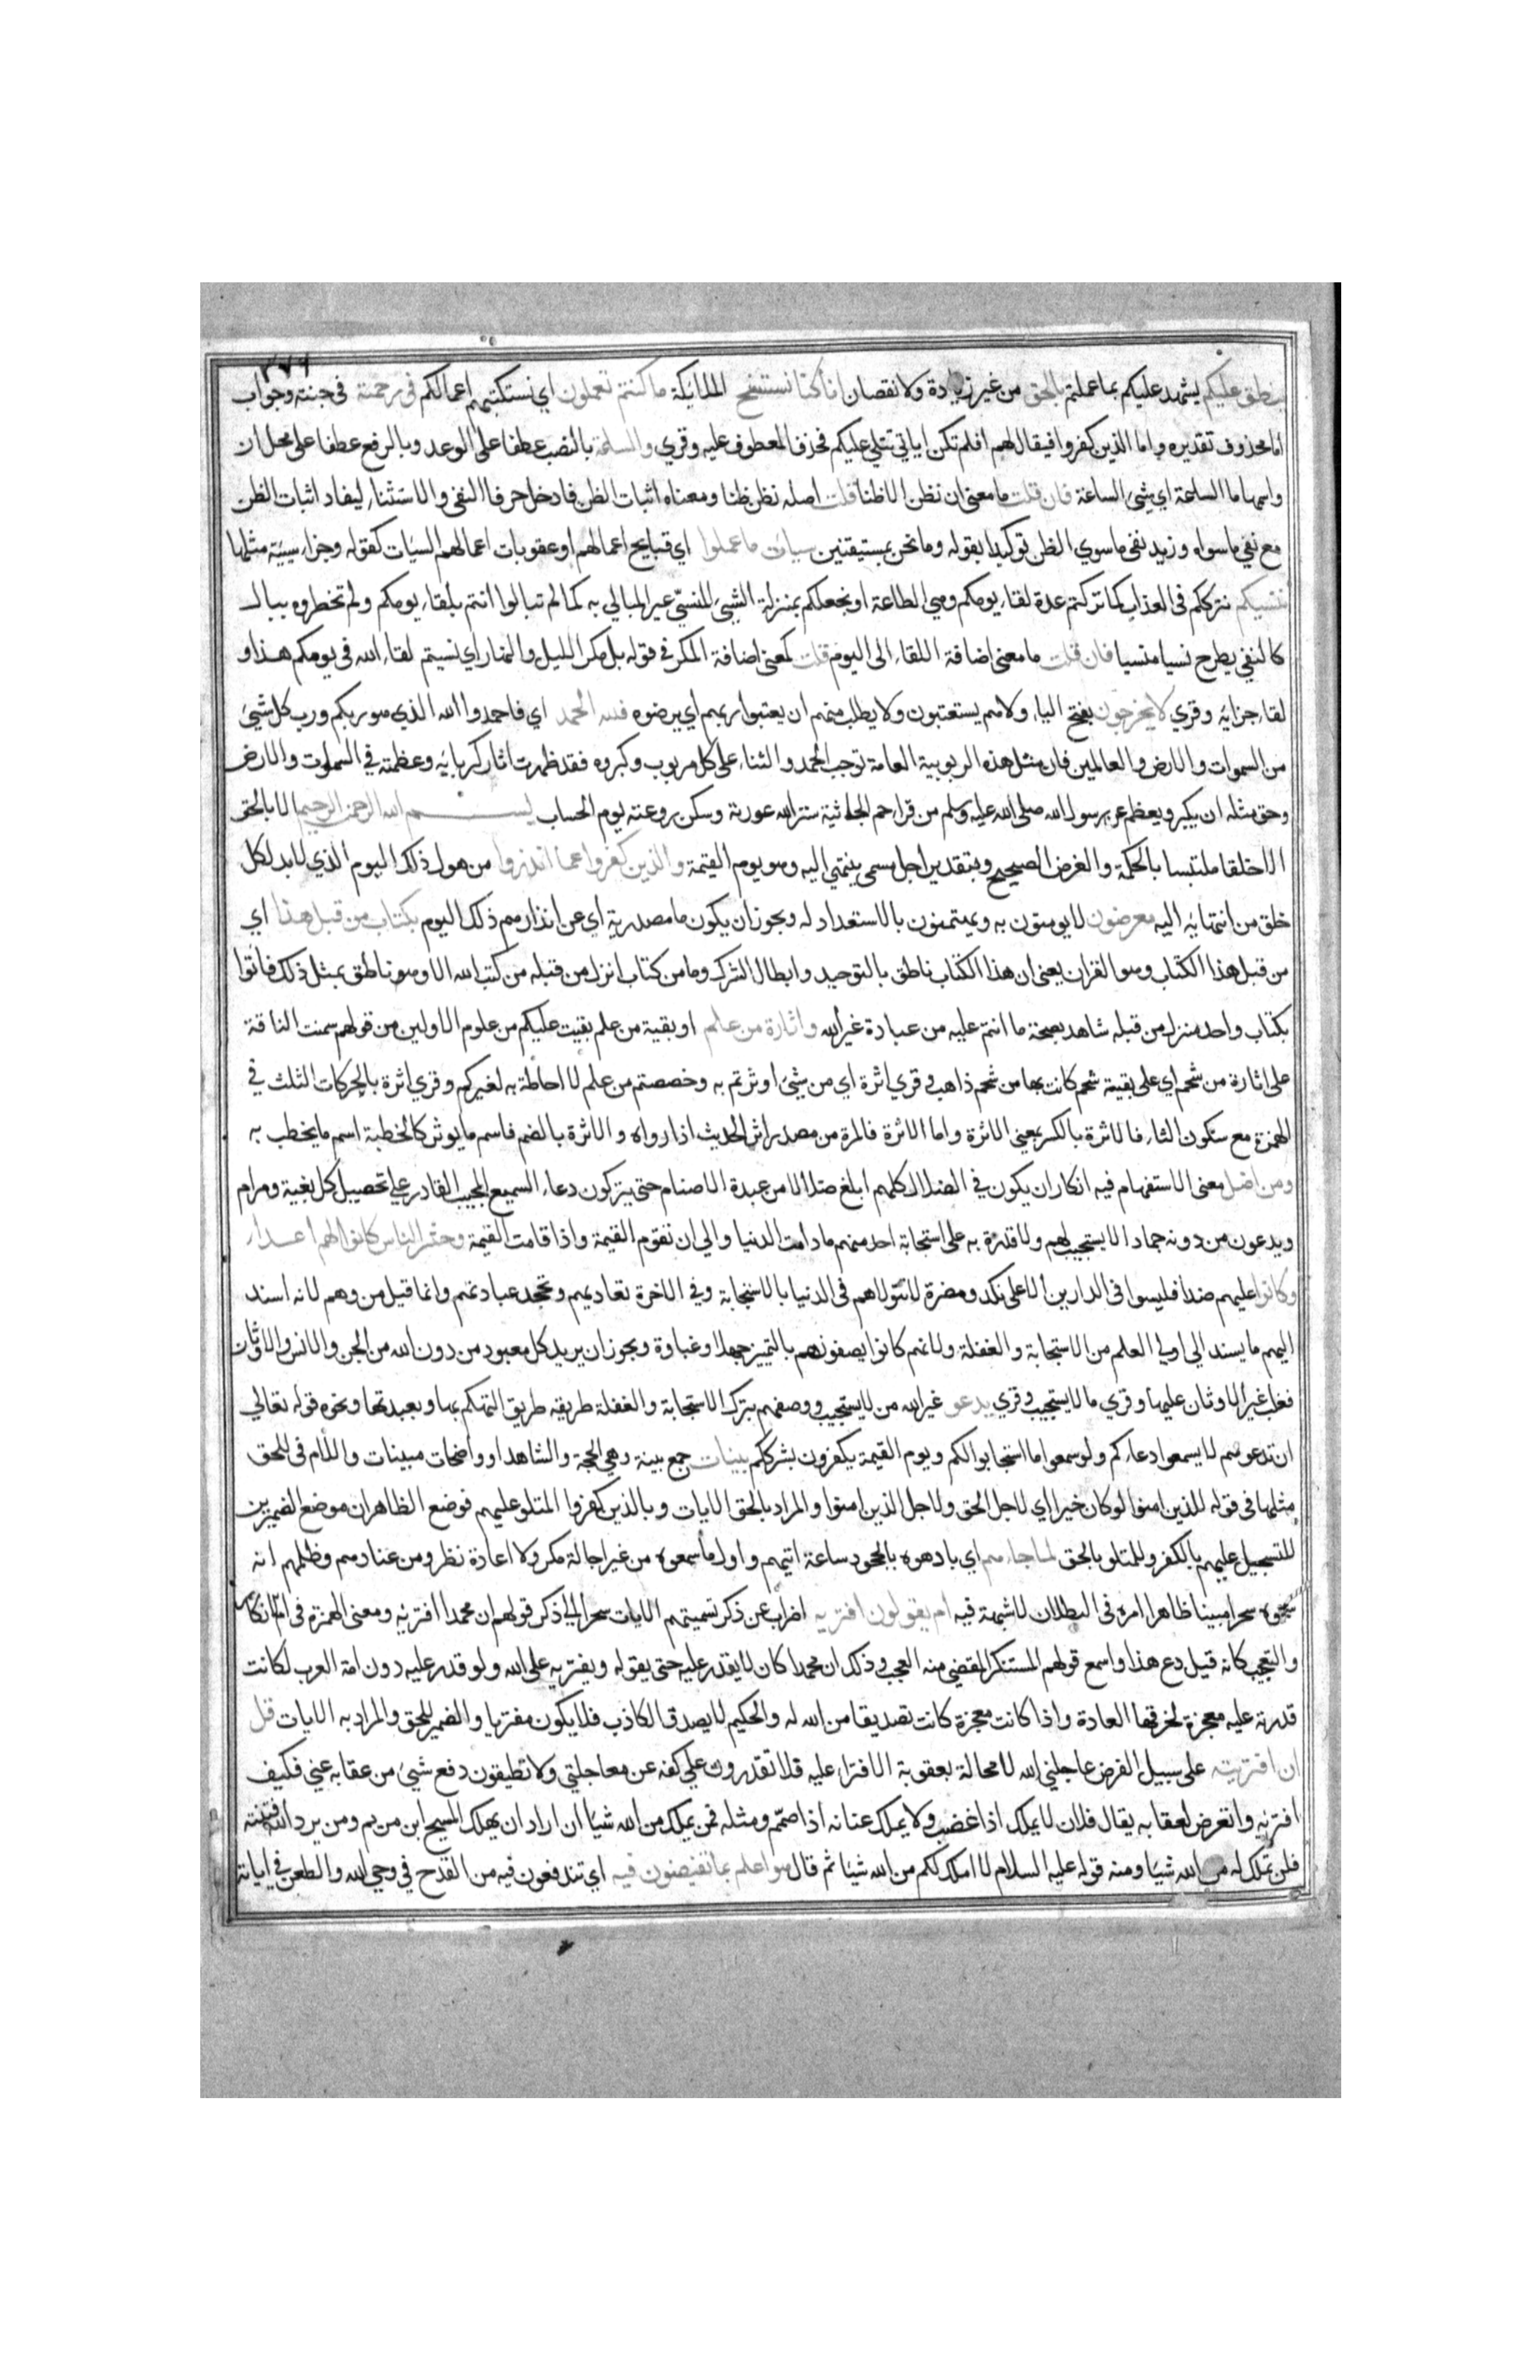 ٣٧٦
ينطق عليكم يشهد عليكم بما عملتم بالحق من غير زيادة ولا نقصان انا كنا نستنسخ الملائكة ما كنتم تعملون اي نستكتبهم اعمالكم في رحمته في جنته وجواب
اما محذوف تقديره واما الذين كفروا فيقال لهم افلم تكن اياتي تتلي عليكم فحذف المعطوف عليه وقري والساعة بالنصب عطفا على الوعد وبالرفع عطفا على محل ان
واسمها ما الساعة اي شيئ الساعة فان قلت ما معنى ان نظن الا ظنا قلت اصله نظن ظنا ومعناه اثبات الظن فادخل حرفا النفي والاستثناء ليفاد اثبات الظن
مع نفي ما سواه وزيد نفي ما سوي الظن توكيدا بقوله وما نحن بمستيقنين سيات ما عملوا اي قبايح اعمالهم او عقوبات اعمالهم السيات كقوله وجزاء سيئة مثلها
ننسيكم نترككم في العذاب كما تركتم عدة لقاء يومكم وهي الطاعة او نجعلكم بمنزلة الشيئ المنسيّ غير المبالي به كما لم تبالوا انتم بلقاء يومكم ولم تخطروه ببال
كالنفي يطرح نسيا منسيا فان قلت ما معنى اضافة اللقاء الى اليوم قلت كمعنى اضافة المكر في قوله بل مكر الليل والنهار اي نسيتم لقاء الله في يومكم هذا و
لقاء جزايه وقري لا يخرجون بفتح الياء ولا هم يستعتبون ولا يطلب منهم ان يعتبوا ربهم اي يرضوه فلله الحمد اي فاحمدوا الله الذي هو ربكم ورب كل شيئ
من السموات والارض والعالمين فان مثل هذه الربوبية العامة توجب الحمد والثناء على كل مربوب وكبروه فقد ظهرت اثار كبريائه وعظمته في السموت والارض
وحق مثله ان يكبر ويعظم عن رسول الله صلى الله عليه وسلم من قرا حم الجاثية ستر الله عورته وسكن روعته يوم الحساب بسم الله الرحمن الرحيم الا بالحق
الا خلقا ملتبسا بالحكمة والغرض الصحيح وبتقدير اجل مسمى ينتهي اليه وهو يوم القيمة والذين كفروا عما انذروا من هول ذلك اليوم الذي لا بد لكل
خلق من انتهايه اليه معرضون لا يومنون به ولا يهتمون بالاستعداد له ويجوز ان يكون ما مصدرية اي عن انذارهم ذلك اليوم بكتاب من قبل هذا اي
من قبل هذا الكتاب وهو القران يعنى ان هذا الكتاب ناطق بالتوحيد وابطال الشرك وما من كتاب انزل من قبله من كتب الله الا وهو ناطق بمثل ذلك فاتوا
بكتاب واحد منزل من قبله شاهد بصحة ما انتم عليه من عبادة غير الله واثارة من علم او بقية من علم بقيت عليكم من علوم الاولين من قولهم سمنت الناقة
على اثارة من شحم اي على بقية شحم كانت بها من شحم ذاهب وقري اثرة اي من شيئ اوثرتم به وخصصتم من علم لا احاطة به لغيركم وقري اثرة بالحركات الثلث في
الهمزة مع سكون الثاء فالاثرة بالكسر بمعنى الاثرة واما الاثرة فالمرة من مصدر اثر الحديث اذا رواه والاثرة بالضم فاسم ما يوثر كالخطبة اسم ما يخطب به
ومن اضل معنى الاستفهام فيه انكار ان يكون في الضلال كلهم ابلغ ضلالا من عبدة الاصنام حتى يتركون دعاء السميع المجيب القادر على تحصيل كل بغية ومرام
ويدعون من دونه جمادا لا يستجيب لهم ولا قدرة به على استجابة احد منهم ما دامت الدنيا والي ان تقوم القيمة واذا قامت القيمة وحشر الناس كانوا لهم اعداء
وكانوا عليهم ضدا فليسوا في الدارين الا على نكد ومضرة لا تتولاهم في الدنيا بالاستجابة وفي الاخرة تعاديهم وتجحد عبادتهم وانما قيل من وهم لانه اسند
اليهم ما يسند الى اولي العلم من الاستجابة والغفلة ولانهم كانوا يصفونهم بالتمييز جهلا وغباوة ويجوز ان يريد كل معبود من دون الله من الجن والانس والاوثان
فغلب غير الاوثان عليها وقري ما لا يستجيب وقري يدعو غير الله من لا يستجيب ووصفهم بترك الاستجابة والغفلة طريقه طريق التهكم بها وبعبدتها ونحوه قوله تعالى
ان تدعوهم لا يسمعوا دعاءكم ولو سمعوا ما استجابوا لكم ويوم القيمة يكفرون بشرككم بينات جمع بينة وهي الحجة والشاهد او واضحات مبينات واللام في للحق
مثلها في قوله للذين امنوا لو كان خيرا اي لاجل الحق ولاجل الذين امنوا والمراد بالحق الايات وبالذين كفروا المتلو عليهم فوضع الظاهران موضع الضميرين
للتسجيل عليهم بالكفر وللمتلو بالحق لما جاءهم اي بادهوه بالجحود ساعة اتيهم واول ما سمعوه من غير اجالة فكر ولا اعادة نظر ومن عنادهم وظلمهم انه
سموه سحرا مبينا ظاهرا امره في البطلان لا شبهة فيه ام يقولون افتريه اضراب عن ذكر تسميتهم الايات سحرا الى ذكر قولهم ان محمدا افتريه ومعنى الهمزة في ام الانكار
والتعجيب كانه قيل دع هذا واسمع قولهم المستنكر المقضي منه العجب وذلك ان محمدا كان لا يقدر عليه حتى يقوله ويفتريه على الله ولو قدر عليه دون امة العرب لكانت
قدرته عليه معجزة لخرقها العادة واذا كانت معجزة كانت تصديقا من الله له والحكيم لا يصدق الكاذب فلا يكون مفتريا والضمير للحق والمراد به الايات قل
ان افتريته على سبيل الفرض عاجلني الله لا محالة بعقوبة الافتراء عليه فلا تقدرون على كفه عن معاجلتي ولا تطيقون دفع شيئ من عقابه عني فكيف
افتريه واتعرض لعقابه يقال فلان لا يملك اذا غضب ولا يملك عنانه اذا صمّم ومثله فمن يملك من الله شيا ان اراد ان يهلك المسيح ابن مريم ومن يرد الله فتنته
فلن تملك له من الله شيا ومنه قوله عليه السلام لا املك لكم من الله شيا ثم قال هو اعلم بما تفيضون فيه اي تندفعون فيه من القدح في وحي الله والطعن في اياته